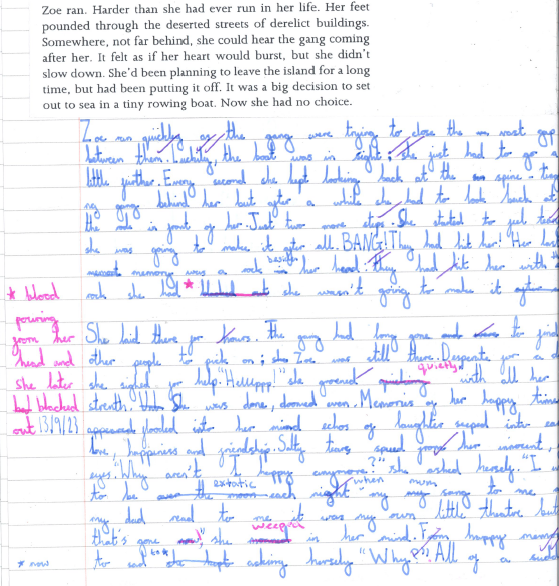 Zoe ran. Harder than she had ever run in her life. Her feet
pounded through the deserted streets of derelict buildings.
Somewhere, not far behind, she could hear the gang coming
after her. It felt as if her heart would burst, but she didn't
slow down. She'd been planning to leave the island for a long
time, but had been putting it off. It was a big decision to set
out to sea in a tiny rowing boat. Now she had no choice.
Zoe ran quickly as the gang were trying to close the vast gap
between them. Luckily, the boat was in sight; she just had to go a
little further. Every second she kept looking back at the spine - ting
ing gang behind her but after a while she had to look back at
the in front of her. Just two more steps. She started to feel
she was going to make it after all. BANG! They had hit her! Her last
memory was a rock beside her head: they had hit her with the
rock she had * she wasn't going to make it
* blood
pouring
from her
head and
she later
blacked
out 13/9/23
She laid there for hours. The gang had long gone to find
other people to pick on; Zoe was still there. Desperate for a
she sighed for help. "Hellppp!" she groaned quietly with all her
strenth. She was done, doomed even. Memories of her happy time
flooded into her mind echos of laughter seeped into
love, happiness and friendship. Salty tears speed from her innocent
eyes. "Why aren't I happy anymore?" she asked hersely. "I
to be extatic each night when my mum sang to me
my dad read to me, it was my own little theatre but
that's gone now", she weeped in her mind. From happy
to sad * asking hersely "Why?". All of a
* now